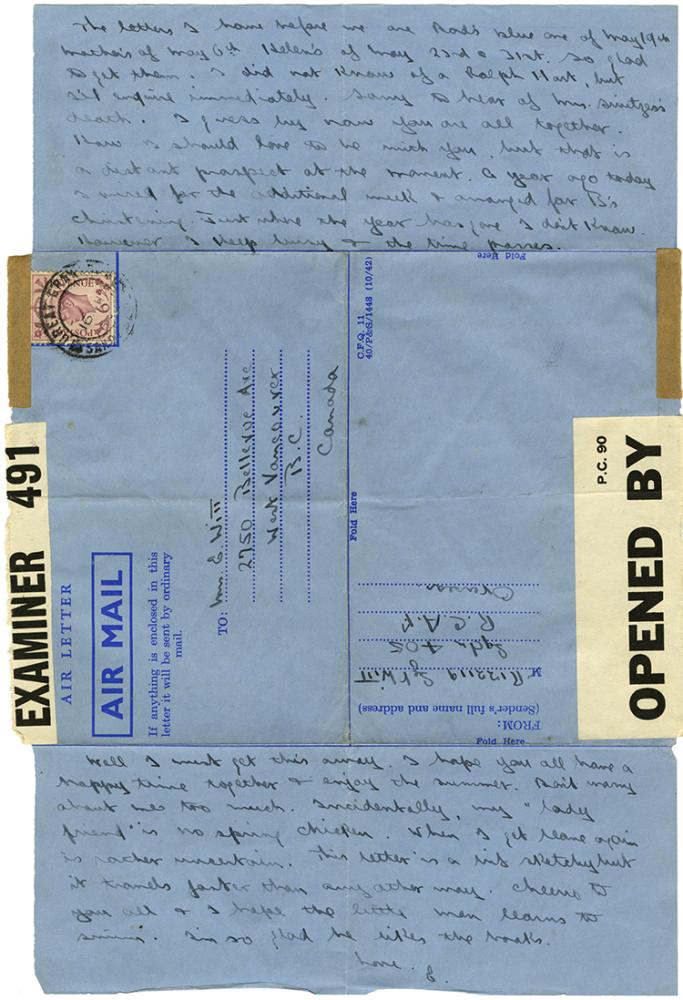 The letters I have before me are Rod's blue one of May 19th
Mother's of May 6th Helen's of May 23rd & 31st. So glad
to get them. I did not know of a Ralph Hart, but
I'll enquire immediately. Sorry to hear of Mrs.
death. I guess by now you are all together.
How I should love to be with you, but that is
a distant prospect at the moment. A year ago today
I wired for the additional week & arranged for B's
christening. Just where the year has gone I don't know.
However I keep busy & the time passes.
Fold Here
C.F.Q. 11
40/P&S/1448 (10/42)
POSTAGE
6D
EXAMINER 491
AIR LETTER
AIR MAIL
If anything is enclosed in this
letter it will be sent by ordinary
mail.
TO: Mrs. E. Witt
2750 Bellevue Ave
West Vancouver
B.C.
Canada
Fold Here
FROM:
(Sender's full name and address)
M R132119 Sgt Witt
Sqdn 402
R.C.A.F.
Overseas
Fold Here
P.C. 90
OPENED BY
Well I must get this away. I hope you all have a
happy time together & enjoy the summer. Don't worry
about me too much. Incidentally, my "lady
friend" is no spring chicken. When I get leave again
is rather uncertain. This letter is a bit sketchy but
it travels faster than any other way. Cheerio to
you all & I hope the little man learns to
swim. I'm so glad he likes the books.
Love. E.